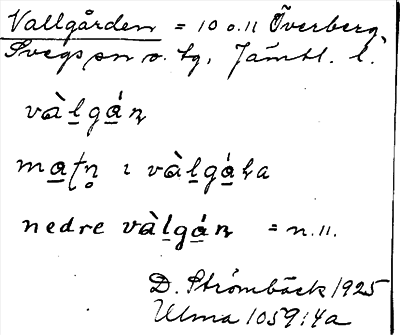 Vallgården = 10 o. 11 Överberg,
Svegs sn o. tg, Jämtl. l.
vàḻgá̱ɳ
ma̱ʈɳ̥ ɩ vàḻgá̱ɳa
nedre vàḻgá̱ɳ = n. 11.
D. Strömbäck 1925
Ulma 1059:4a